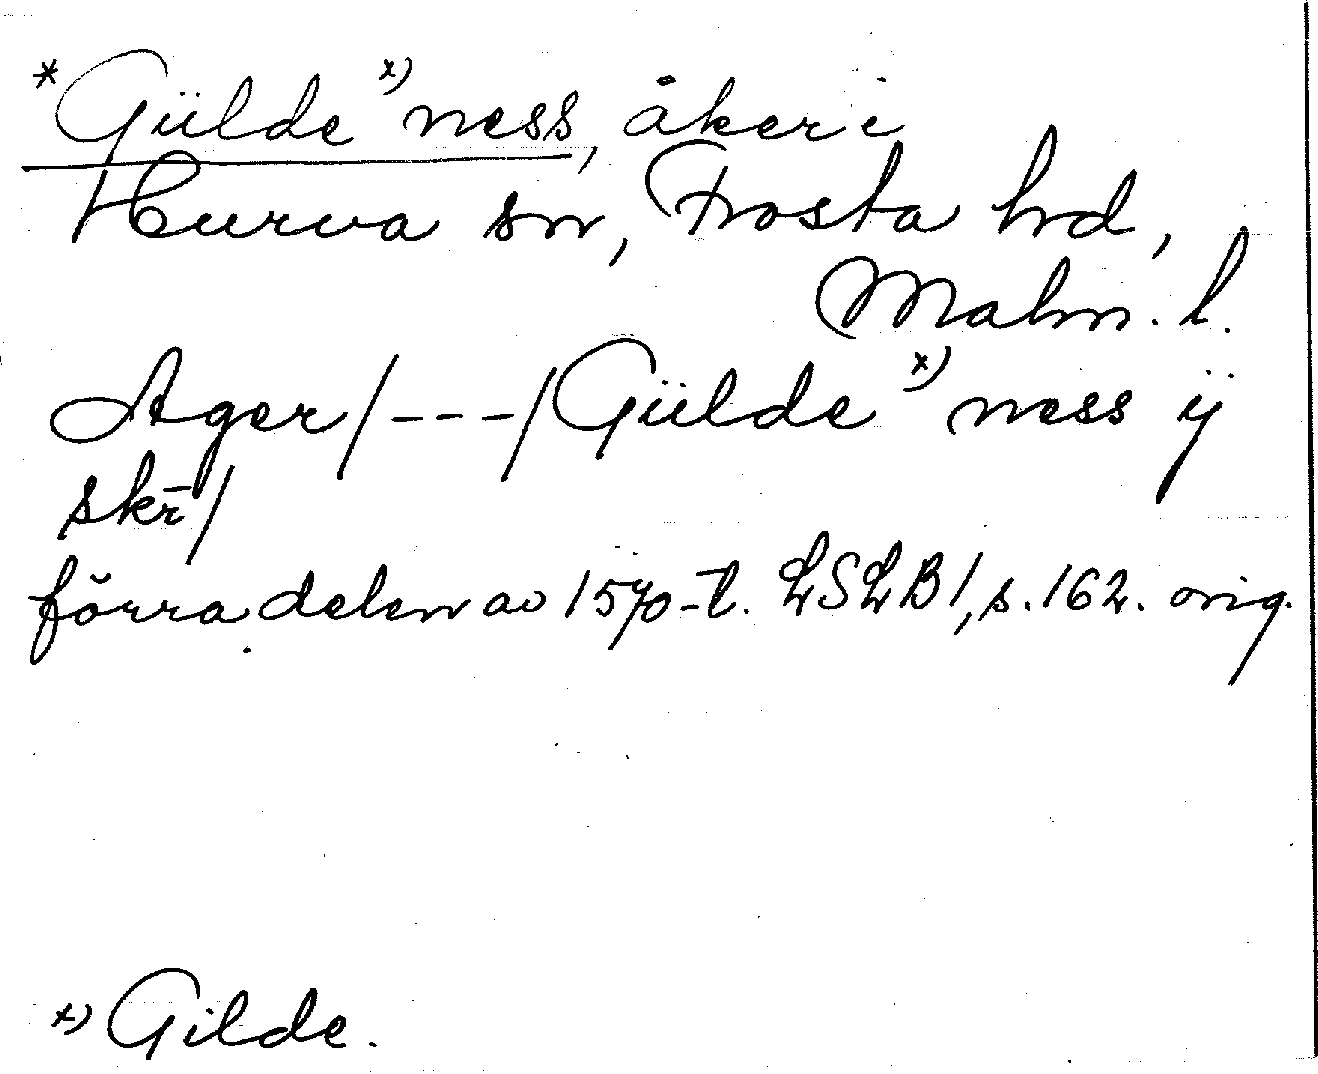 *Gülde x) ness, åker i
Hurva sn, Frosta hd,
Malm. l.
Ager/---/Gülde x) ness ÿ
skr̄/
förra delen av 1570-t. LSLB1, s. 162. orig.
x) Gilde.